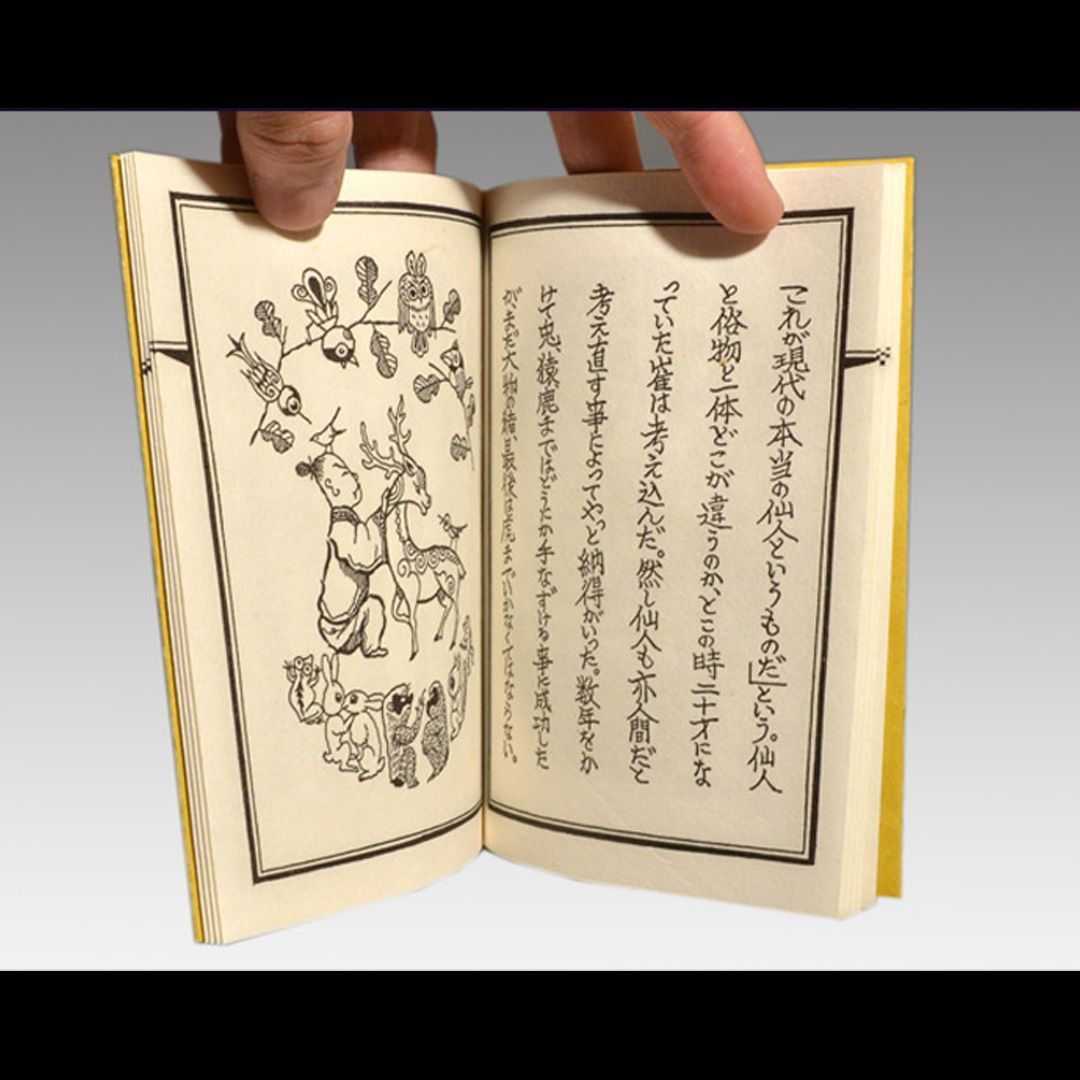 「これが現代の本当の仙人というものだ」という。仙人
と俗物と一体どこが違うのか、とこの時二十才にな
っていた崔は考え込んだ。然し仙人も亦人間だと
考え直す事によってやっと納得がいった。数年をか
けて兎、猿、鹿まではどうたか手なずける事に成功した
が、まだ大物の猪、豆最後は虎までいかなくてはならない。